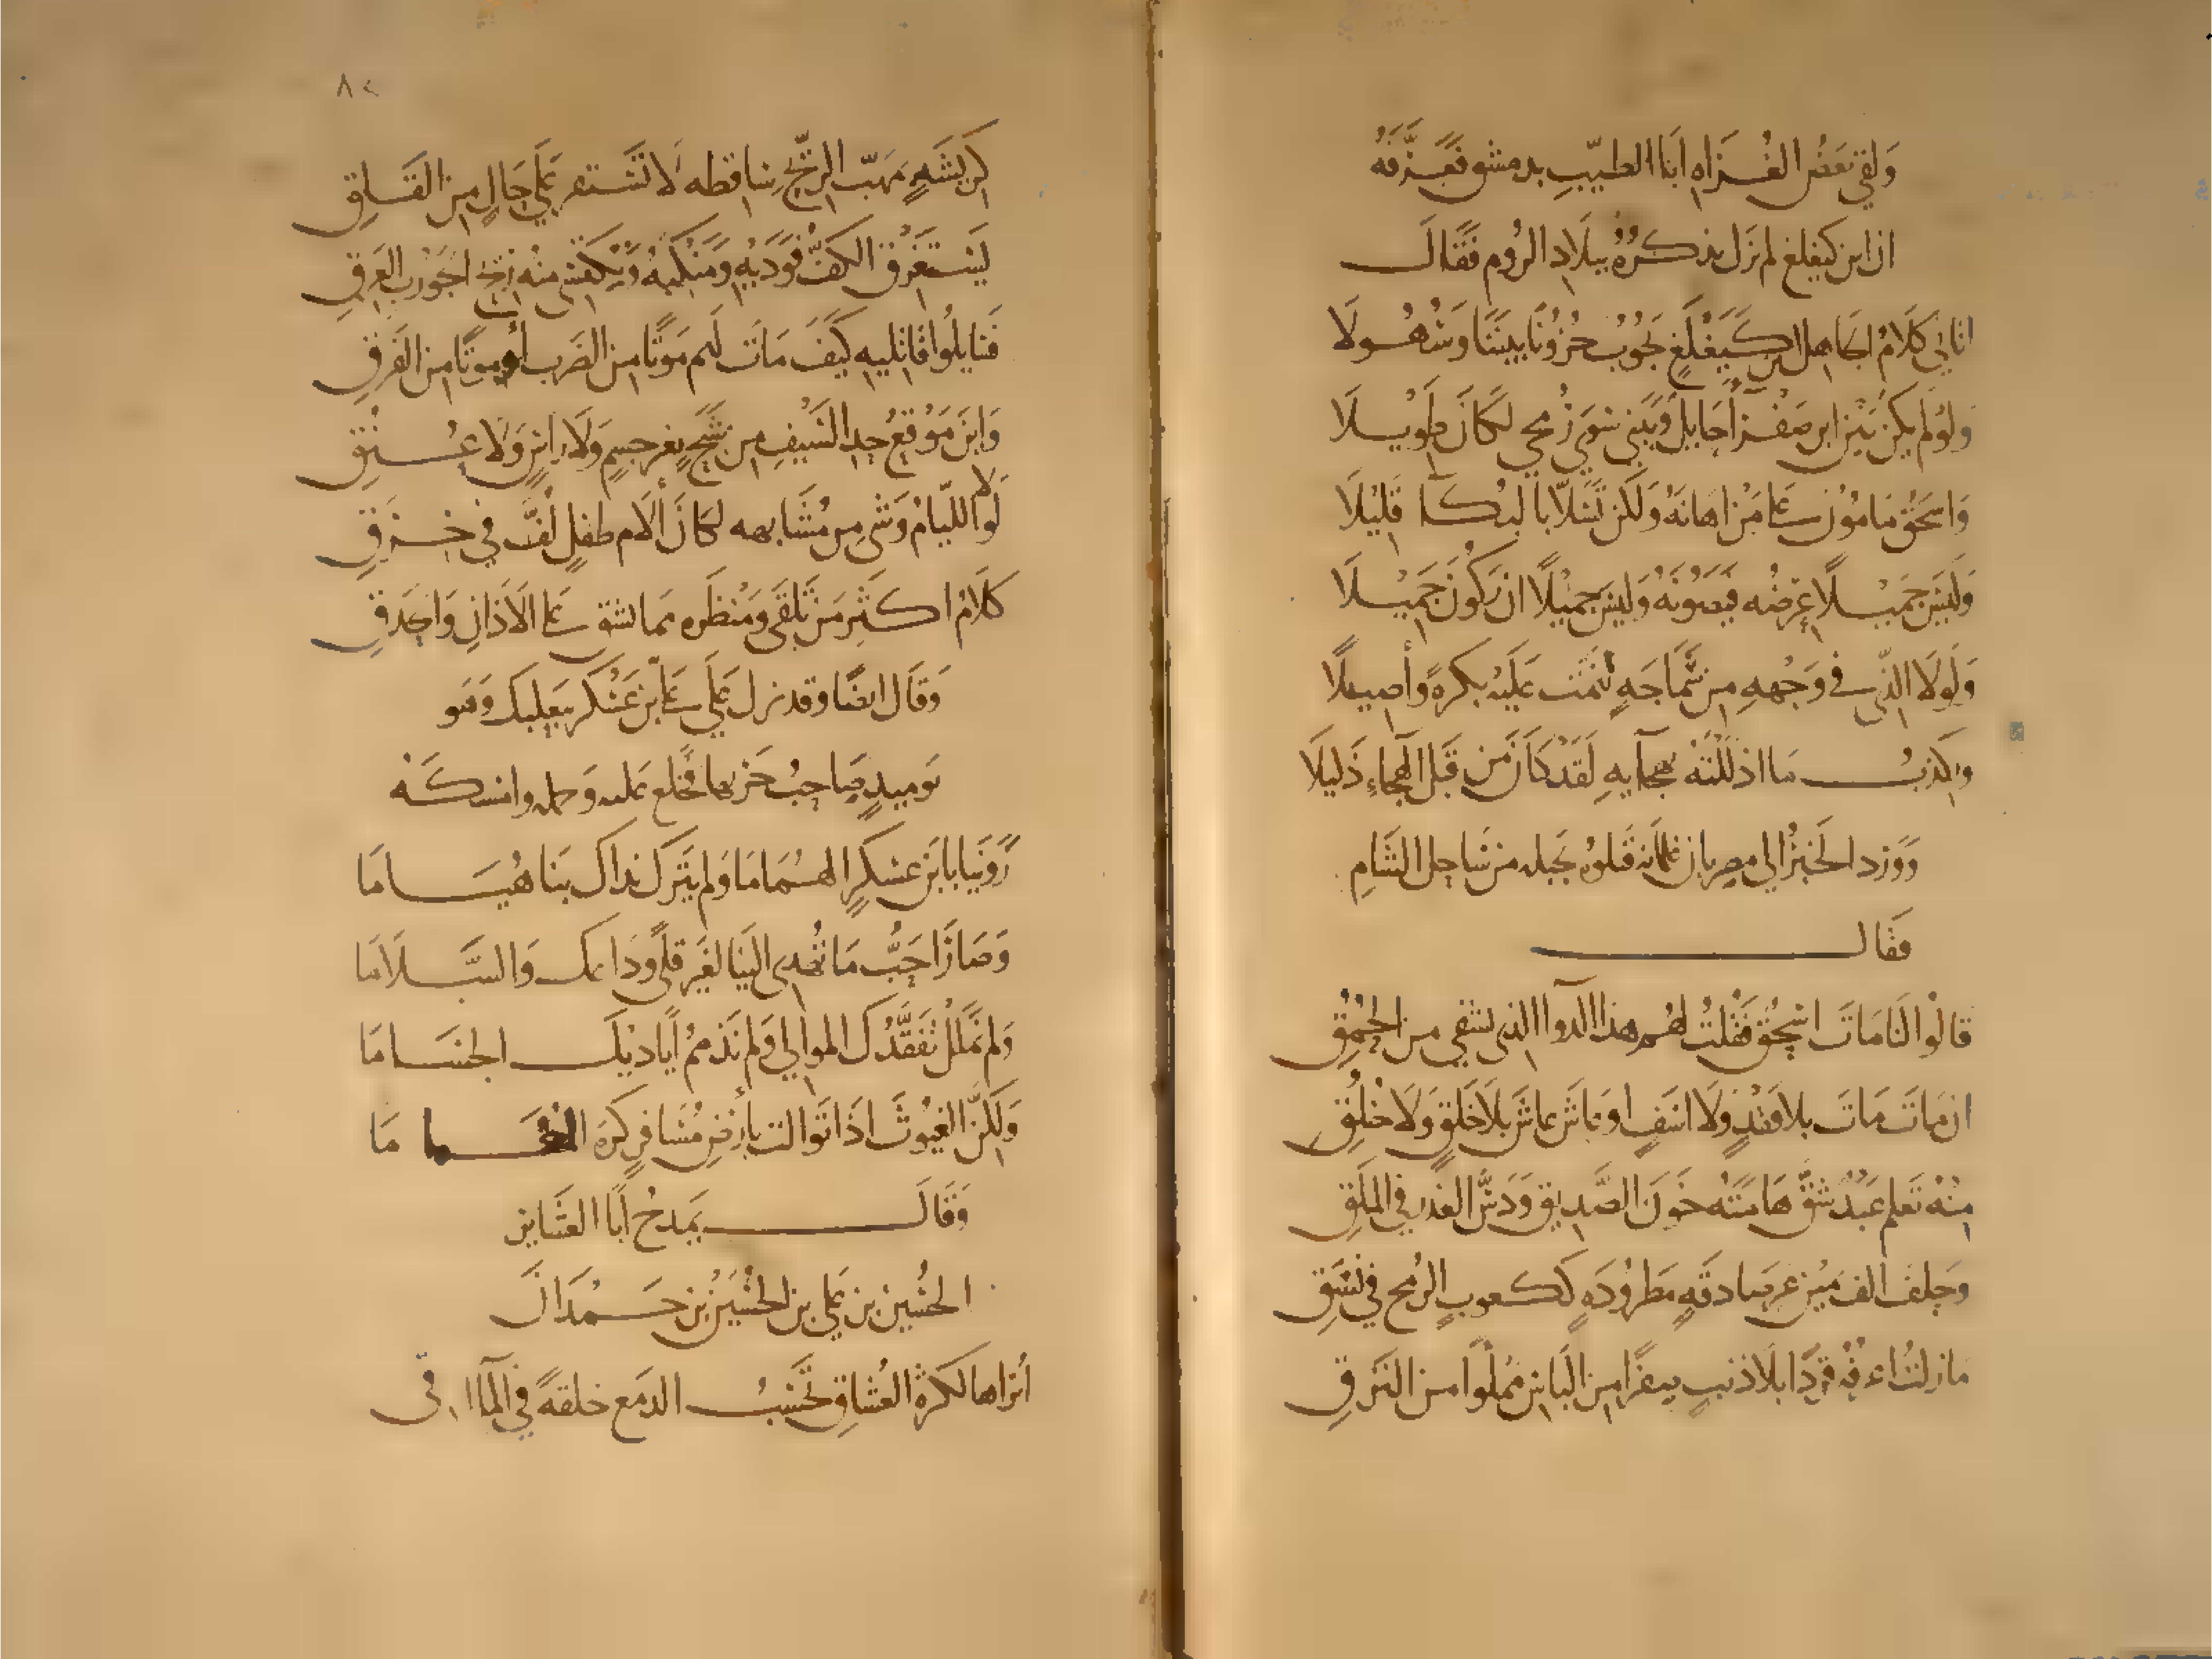 وَلقيَ بَعضُ الغُزاهِ ابَا الطيّبِ بدمشق فَعَرَّفَهُ
ان ابن كيغلغ لم نَزل يذكرُهُ ببلادِ الرُوم فَقَالَ
اتانِي كَلَامُ الجَاهِل ابن كَيَغْلَغٍ يَجُوبُ حُزُونًا بَينَنَا وَسُهُولَا
وَلَوْ لَم يَكُنْ بَيْنَ ابن صَفْرَآءَ حَايِلٌ وَبَيْنِي سِوَى رُمحِي لَكَانَ طَوِيْلَا
وَاسحَقُ مَامُوْنٌ عَلَى مَنْ اهَانَهُ وَلَكِنْ تَسَلَّا بِالبُكَآ قَلِيْلَا
وَلَيْسَ جَمِيْلًا عِرضُه فَيَصُونَهُ وَلَيْسَ جَمِيْلًا ان يَكُونَ جَمِيْلَا
وَلَولَا الذِّي في وَجْهِهِ مِن سَمَاجَةٍ لنمَت عَلَيْهُ بكرةً وأصيلًا
وَيكذبُ مَا اذلَلْتَه بهجَآيهِ لَقَدْ كَانَ مِنْ قَبْلِ الهجَاءِ ذَلِيلَا
وَوَرد الخَبَرُ الي مصر بان غلمَانه قَتَلُوهُ بجَبله من سَاحِل الشَامِ
فقَالَ
قَالُوا لَنَا مَاتَ اسْحَقٌ فَقُلْتُ لهُم هذا الدوا الذي يشفي مِن الحُمُقِ
ان مَاتَ مَاتَ بلا فَقْدٍ وَلَا اسَفٍ اوعَاشَ عاشَ بلَا خَلقٍ وَلَا خُلُقِ
مِنْهُ تَعلم عَبْدٌ شُقَّ هَامَتُه خَونَ الصَّدِيقِ وَدَسَّ الغَدرِ في المَلَقِ
وَحِلفَ الف يَمِيْنٍ غيرِ صَادقَهٍ مَطرُودَهٍ كَكعوبِ الرُمحِ في نَسَقِ
مَا زلتُ اعرفُه قِرْدًا بلَا ذَنبٍ صِفرًا مِن البَاسِ مَمْلُوا مِن النَزَقِ
٨٢
كريشَهٍ بمَهَبّ الرِّيحِ سَاقطه لَا تَسْتَقر عَلَى حَالٍ مِن القَلَقِ
يَستَغرِقُ الكَفَّ فَوْدَيْهِ وَمَنْكِبهُ وَتَكتَسِي مِنْهُ رِيحَ الجَوْربِ العَرِقِ
فَسَايلُوا قَاتِليهِ كَيفَ مَاتَ لَهم مَوتًا مِن الضَرب أو موتًا مِن الفَرقِ
وَاينَ مَوْقعُ حدِ السَيفِ مِن شَبَحٍ بغَيرِ جسِمٍ وَلَا رَاسٍ وَلَا عُنُقِ
لَولَا اللّيَامُ وَشَيْ مِن مُشَابهه لكَانَ ألَام طِفلٍ لُفَّ في خِرَقِ
كَلَامُ اكثَرِ مَنْ تَلْقَى وَمَنظَرِه مِما يَشُق عَلَى الاَذانِ وَالحَدقِ
وَقَال ايضًا وقَد نزل عَلَى عَليّ بن عَسْكَر ببَعلبك وَهو
يَوميدٍ صَاحِبُ حَربها فخلع عَليه وَحمله وامسكَهُ
رَوِيَنا يَا بْنَ عَسْكرٍ الهُمَامَا وَلم يَتْرك نداك بنَا هُيَامَا
وَصَارَ احَبُّ مَا تُهْدِي اليَنا لغَيرِ قلًى وَدَاعَك وَالسَّلَامَا
وَلم نَملُلْ تَفَقُّدُكَ المَوالِي وَلم نَذممْ ايَاديْكَ الجسَامَا
وَلَكِنَّ الغيُوثَ اذَا تَوالت بارضِ مُسَافرٍ كَرِهَ الغَمَامَا
وَقَالَ يَمدحُ ابَا العَشَاير
الحُسَين بن عَلي بن الحُسَيْن بن حَمْدَانَ
أتراهَا لكثرةُ العُشاقِ تَحْسَبُ الدمَع خلقةً في المآاقي